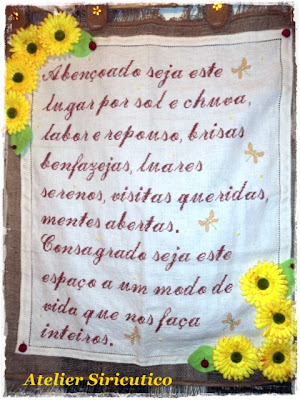 Abençoado seja este
lugar por sol e chuva,
labor e repouso, brisas
benfazejas, luares
serenos, visitas queridas,
mentes abertas.
Consagrado seja este
espaço a um modo de
vida que nos faça
inteiros.
Atelier Siricutico